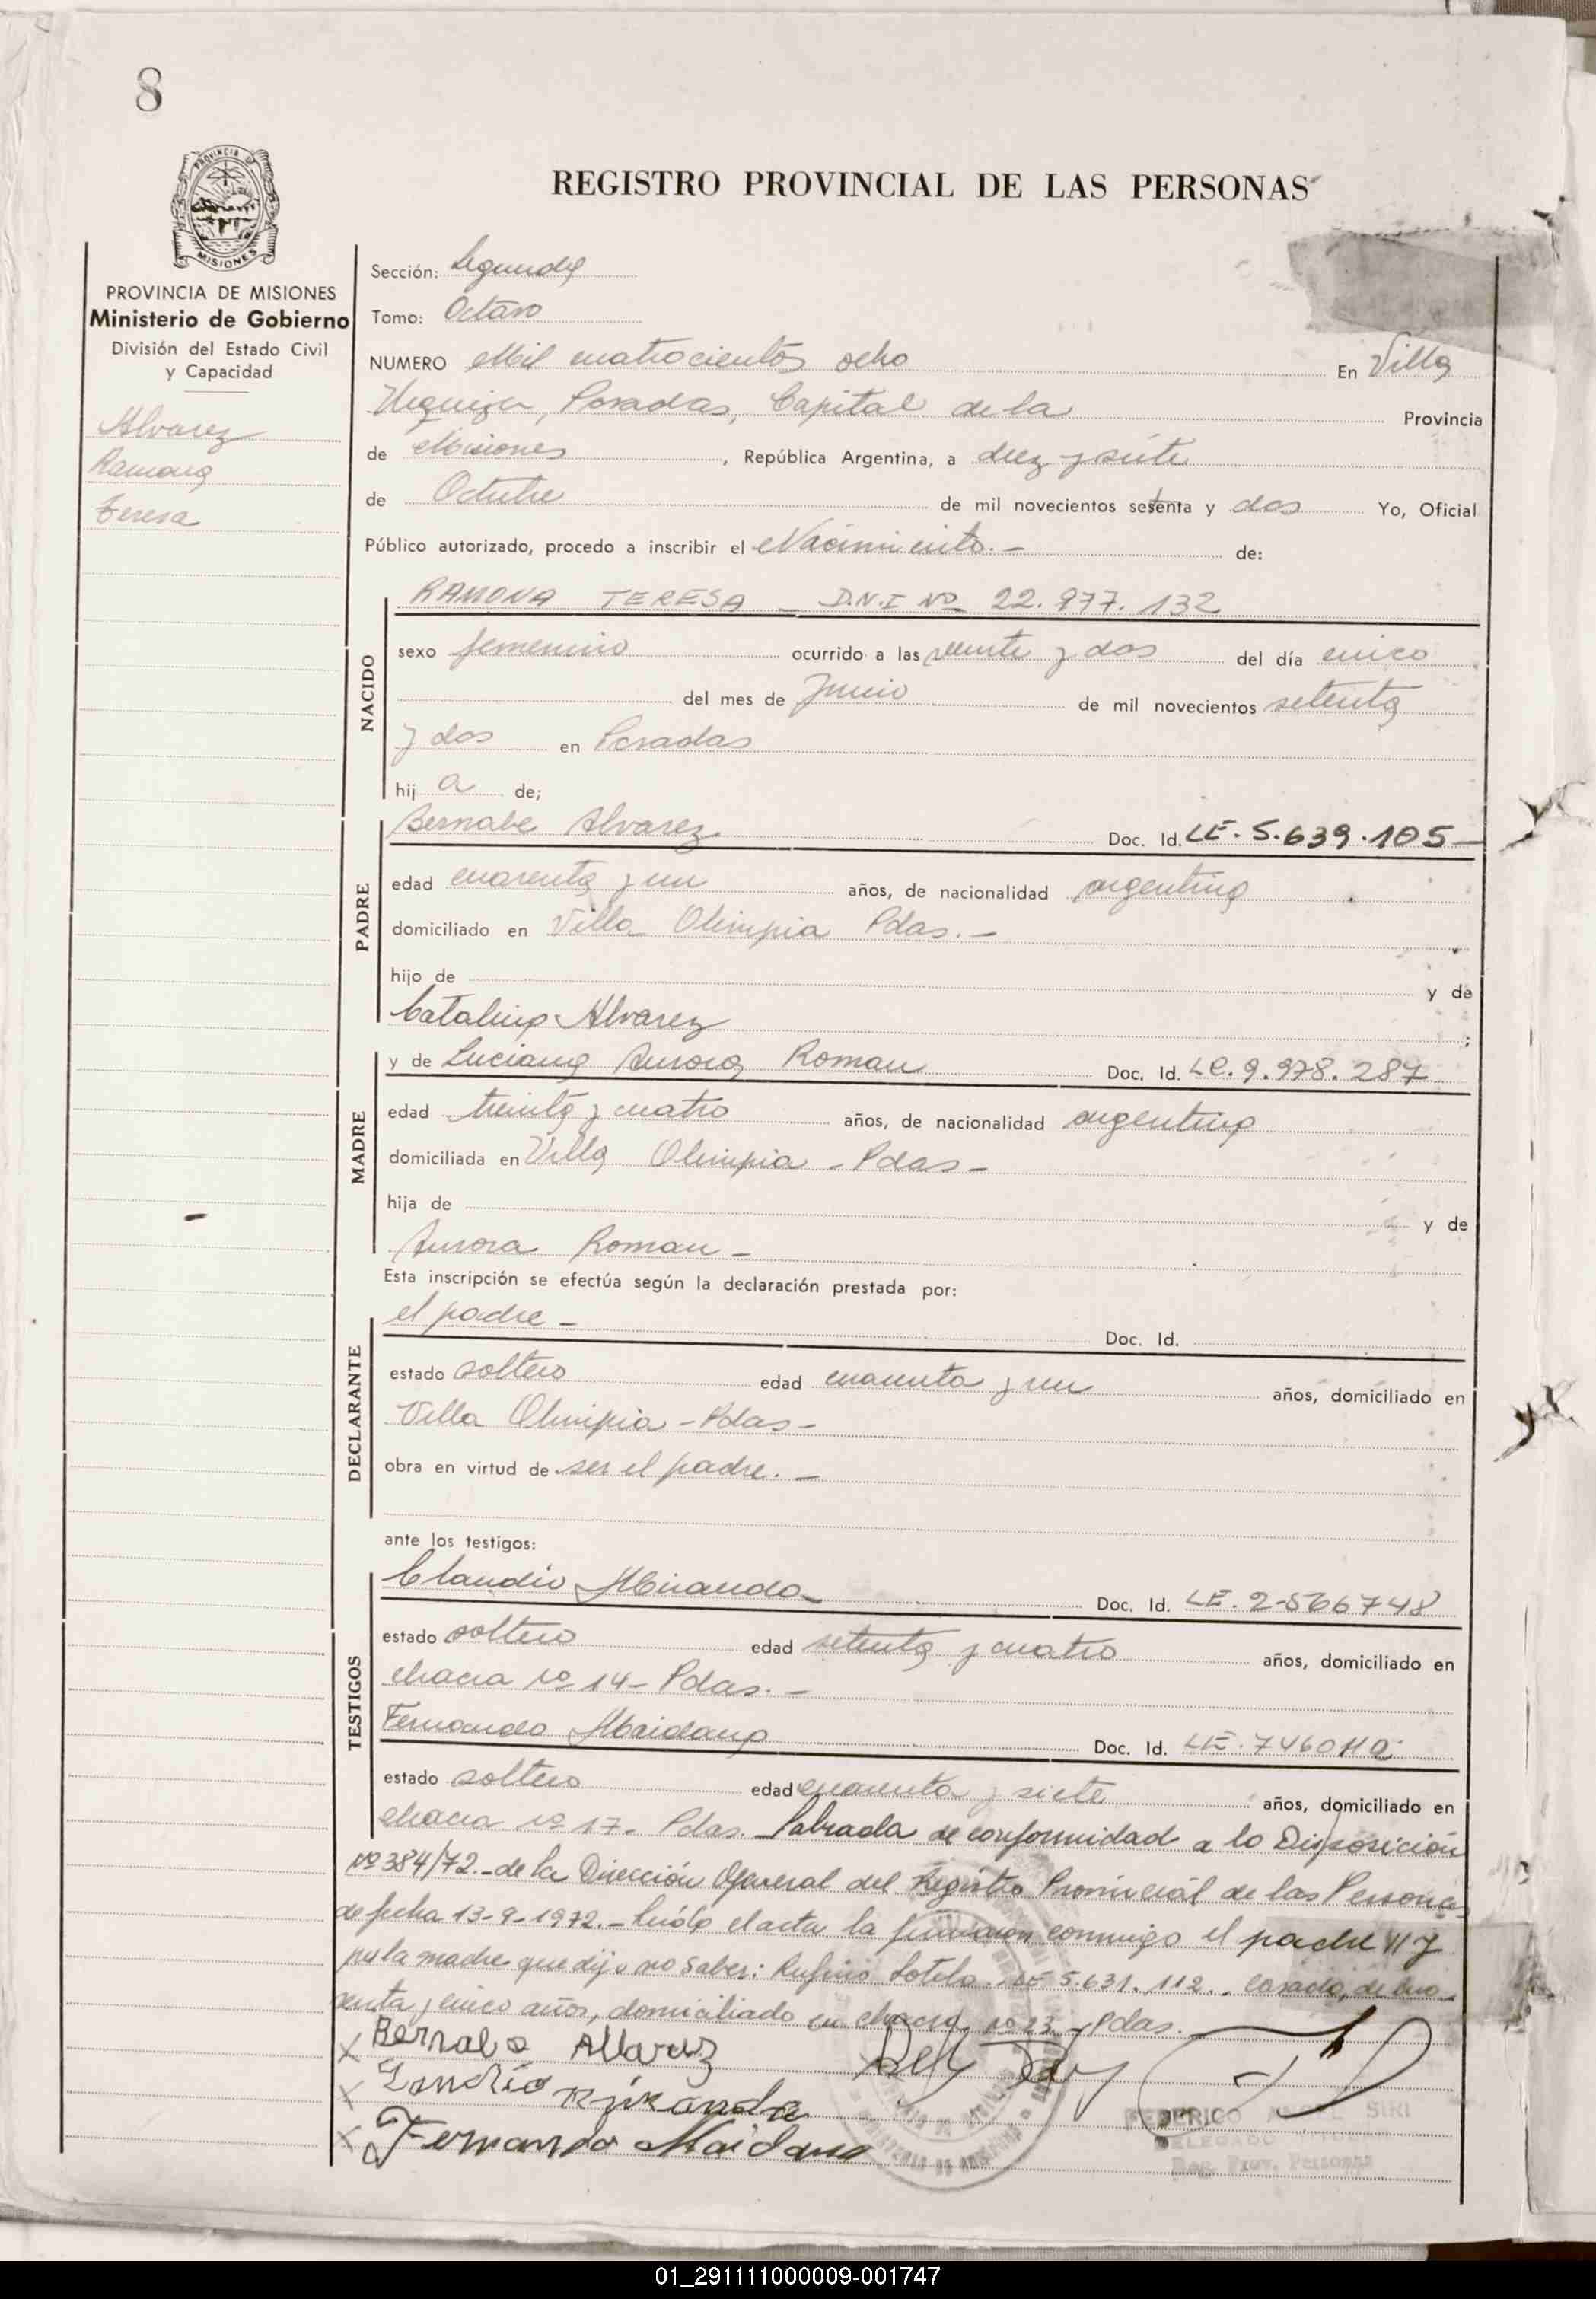 8
REGISTRO PROVINCIAL DE LAS PERSONAS
PROVINCIA
MISIONES
PROVINCIA DE MISIONES
Ministerio de Gobierno
División del Estado Civil
y Capacidad
Alvarez
Ramona
Teresa
Sección: Segunda
Tomo: Octavo
NUMERO Mil cuatrocientos ocho En Villa
Urquiza, Posadas, Capital de la Provincia
de Misiones, República Argentina, a diez y siete
de Octubre de mil novecientos setenta y dos Yo, Oficial
Público autorizado, procedo a inscribir el Nacimiento.- de:
NACIDO
RAMONA TERESA - D.N.I Nº 22.977.132
sexo femenino ocurrido a las veinte y dos del día cinco
del mes de Junio de mil novecientos setenta
y dos en Posadas
hij a de;
PADRE
Bernabe Alvarez Doc. Id. LE. 5.639.105-
edad cuarenta y un años, de nacionalidad argentina
domiciliado en Villa Olimpia Pdas.-
hijo de y de
Catalina Alvarez ;
MADRE
y de Luciana Aurora Roman Doc. Id. LC. 9.978.287
edad treinta y cuatro años, de nacionalidad argentina
domiciliada en Villa Olimpia - Pdas-
hija de y de
Aurora Roman -
Esta inscripción se efectúa según la declaración prestada por:
DECLARANTE
el padre - Doc. Id.
estado soltero edad cuarenta y un años, domiciliado en
Villa Olimpia - Pdas-
obra en virtud de ser el padre.-
ante los testigos:
TESTIGOS
Claudio Miranda Doc. Id. LE. 2-566748
estado soltero edad setenta y cuatro años, domiciliado en
chacra nº 14- Pdas.-
Fernando Maidana Doc. Id. LE. 7460110
estado soltero edad cuarenta y siete años, domiciliado en
chacra nº 17- Pdas. Labrada de conformidad a lo Disposición
Nº 384/72.- de la Dirección General del Registro Provincial de las Personas
de fecha 13-9-1972.- Leída el acta la firmaron conmigo el padre y
por la madre que dijo no saber: Rufino Sotelo. LE 5.631.112.. casado, de cua-
renta y cinco años, domiciliado en chacra nº 23 - Pdas.
x Bernabe Alvarez
x Claudio Miranda
x Fernando Maidana
FEDERICO ANGEL SIRI
DELEGADO
Reg. Prov. Personas
01_291111000009-001747